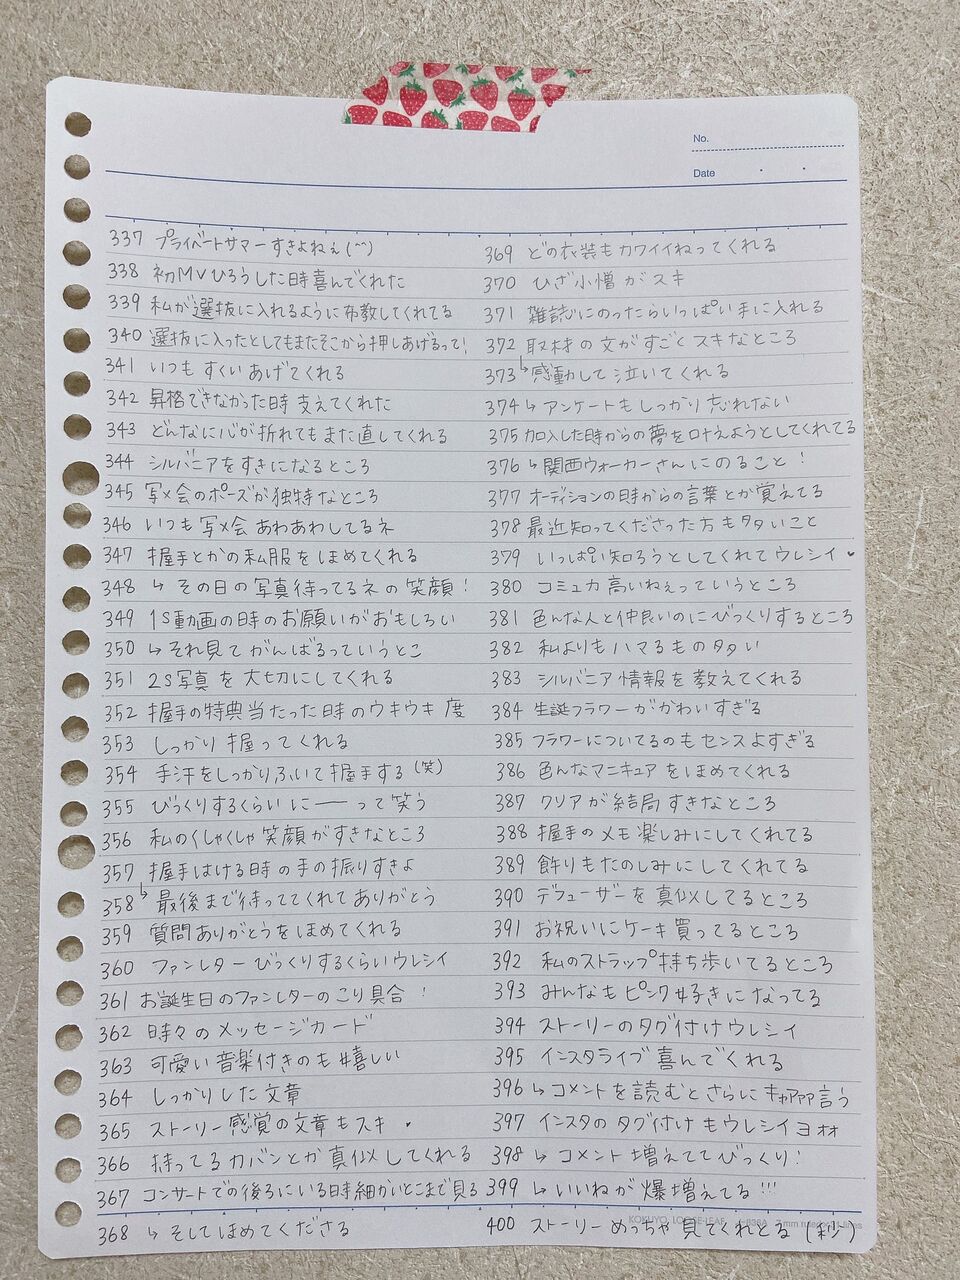 No.
Date
337 プライベートサマーすきよねぇ(^^)
338 初MVひろうした時喜んでくれた
339 私が選抜に入れるように布教してくれてる
340 選抜に入ったとしてもまたそこから押しあげるって!
341 いつもすくいあげてくれる
342 昇格できなかった時支えてくれた
343 どんなに心が折れてもまた直してくれる
344 シルバニアをすきになるところ
345 写メ会のポーズが独特なところ
346 いつも写メ会あわあわしてるネ
347 握手とかの私服をほめてくれる
348 ↳ その日の写真待ってるネの笑顔!
349 1S動画の時のお願いがおもしろい
350 ↳ それ見てがんばるっていうとこ
351 2S写真を大切にしてくれる
352 握手の特典当たった時のウキウキ度
353 しっかり握ってくれる
354 手汗をしっかりふいて握手する(笑)
355 びっくりするくらいにーーって笑う
356 私のくしゃくしゃ笑顔がすきなところ
357 握手はける時の手の振りすきよ
358 ↳ 最後まで待っててくれてありがとう
359 質問ありがとうをほめてくれる
360 ファンレターびっくりするくらいウレシイ
361 お誕生日のファンレターのこり具合!
362 時々のメッセージカード
363 可愛い音楽付きのも嬉しい
364 しっかりした文章
365 ストーリー感覚の文章もスキ
366 持ってるカバンとか真似してくれる
367 コンサートでの後ろにいる時細かいとこまで見る
368 ↳ そしてほめてくださる
369 どの衣装もカワイイねってくれる
370 ひざ小憎がスキ
371 雑誌にのったらいっぱい手に入れる
372 取材の文がすごくスキなところ
373 ↳ 感動して泣いてくれる
374 ↳ アンケートもしっかり忘れない
375 加入した時からの夢を叶えようとしてくれてる
376 ↳ 関西ウォーカーさんにのること!
377 オーディションの時からの言葉とか覚えてる
378 最近知ってくださった方も多いこと
379 いっぱい知ろうとしてくれてウレシイ♥
380 コミュ力高いねぇっていうところ
381 色んな人と仲良いのにびっくりするところ
382 私よりもハマるもの多い
383 シルバニア情報を教えてくれる
384 生誕フラワーがかわいすぎる
385 フラワーについてるのもセンスよすぎる
386 色んなマニキュアをほめてくれる
387 クリアが結局すきなところ
388 握手のメモ楽しみにしてくれてる
389 飾りもたのしみにしてくれてる
390 デフューザーを真似してるところ
391 お祝いにケーキ買ってるところ
392 私のストラップ持ち歩いてるところ
393 みんなもピンク好きになってる
394 ストーリーのタグ付けウレシイ
395 インスタライブ喜んでくれる
396 ↳ コメントを読むとさらにキャアァァ言う
397 インスタのタグ付けもウレシイヨォォ
398 ↳ コメント増えててびっくり!
399 ↳ いいねが爆増えてる!!!
400 ストーリーめっちゃ見てくれとる(秒)
KOKUYO LOOSE-LEAF